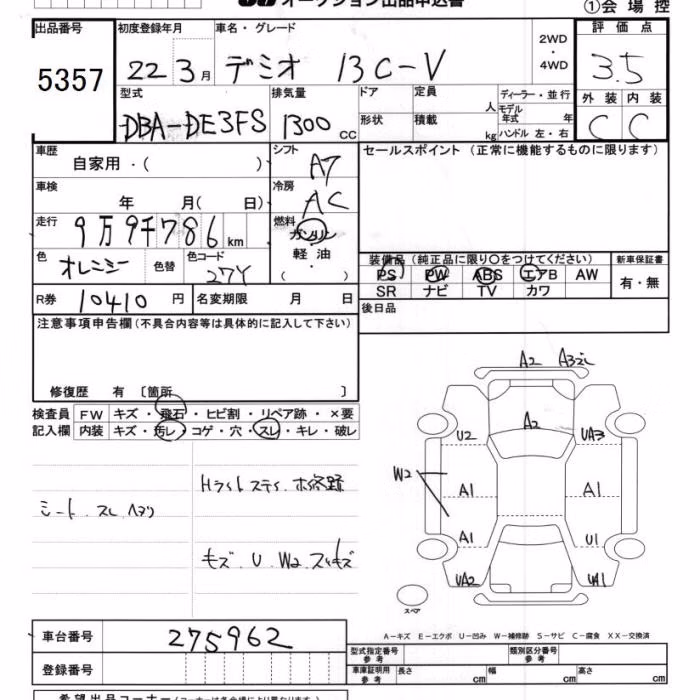 オークション出品申込書
①会 場 控
出品番号
5357
初度登録年月
22 3月
車名・グレード
デミオ 13C-V
2WD
・
4WD
評 価 点
3.5
外 装 内 装
C C
型式
DBA-DE3FS
排気量
1300 cc
ドア
定員
人
形状
積載
kg
ディーラー・並行
モデル
年式 年
ハンドル 左・右
車歴
自家用・( )
シフト
A7
セールスポイント (正常に機能するものに限ります)
車検
年 月( 日)
冷房
AC
走行
9万9千786 km
燃料
ガソリン
・
軽 油
・
( )
色
色替
色コード
27Y
装備品 (純正品に限り○をつけてください)
PS PW ABS エアB AW
SR ナビ TV カワ
新車保証書
有・無
R券
10410 円
名変期限 月 日
後日品
注意事項申告欄 (不具合内容等は具体的に記入して下さい)
修復歴 有 〔箇所 〕
検査員
記入欄
FW キズ・飛石・ヒビ割・リペア跡・×要
内装 キズ・汚レ・コゲ・穴・スレ・キレ・破レ
シート スレ ヘタリ
キズ U W2 スリキズ
A2
A2
U2
UA3
W2
A1
A1
A1
U1
UA2
UA1
スペア
A-キズ E-エクボ U-凹み W-補修跡 S-サビ C-腐食 XX-交換済
車台番号
275962
登録番号
型式指定番号
参 考
類別区分番号
参 考
車庫証明用
参 考
長さ cm
幅 cm
高さ cm
希望出品コーナー